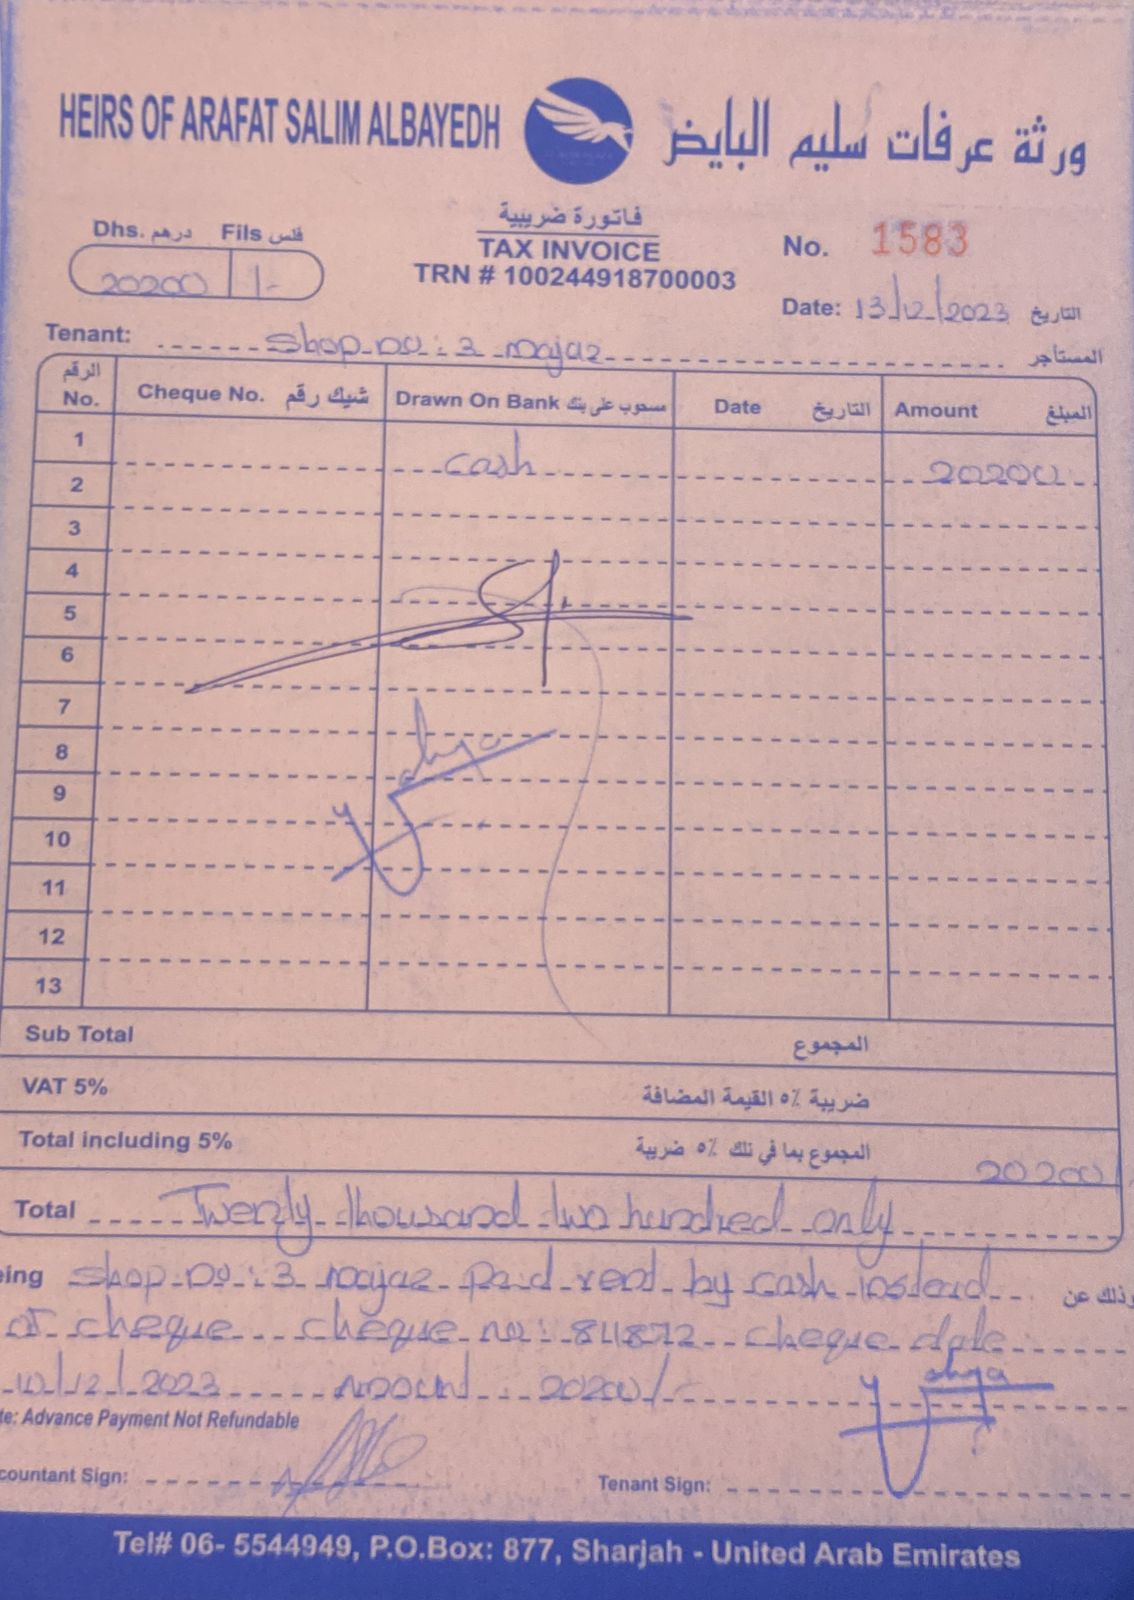 HEIRS OF ARAFAT SALIM ALBAYEDH ورثة عرفات سليم البايض
فاتورة ضريبية
TAX INVOICE
TRN # 100244918700003
Dhs. درهم Fils فلس
20200 /-
No. 1583
Date: 13/12/2023 التاريخ
Tenant: Shop no: 3 majaz المستأجر
الرقم No. Cheque No. شيك رقم Drawn On Bank مسحوب على بنك Date التاريخ Amount المبلغ
1
cash 20200
2
3
4
5
6
7
8
9
10
11
12
13
Sub Total المجموع
VAT 5% ضريبة ٥٪ القيمة المضافة
Total including 5% المجموع بما في تلك ٥٪ ضريبة 20200/
Total Twenty thousand two hundred only
eing Shop no: 3 majaz paid rent by cash instead وذلك عن
of cheque cheque no: 811872 cheque date
10/12/2023 Amount: 20200/-
te: Advance Payment Not Refundable
countant Sign:
Tenant Sign: Yahya
Tel# 06- 5544949, P.O.Box: 877, Sharjah - United Arab Emirates